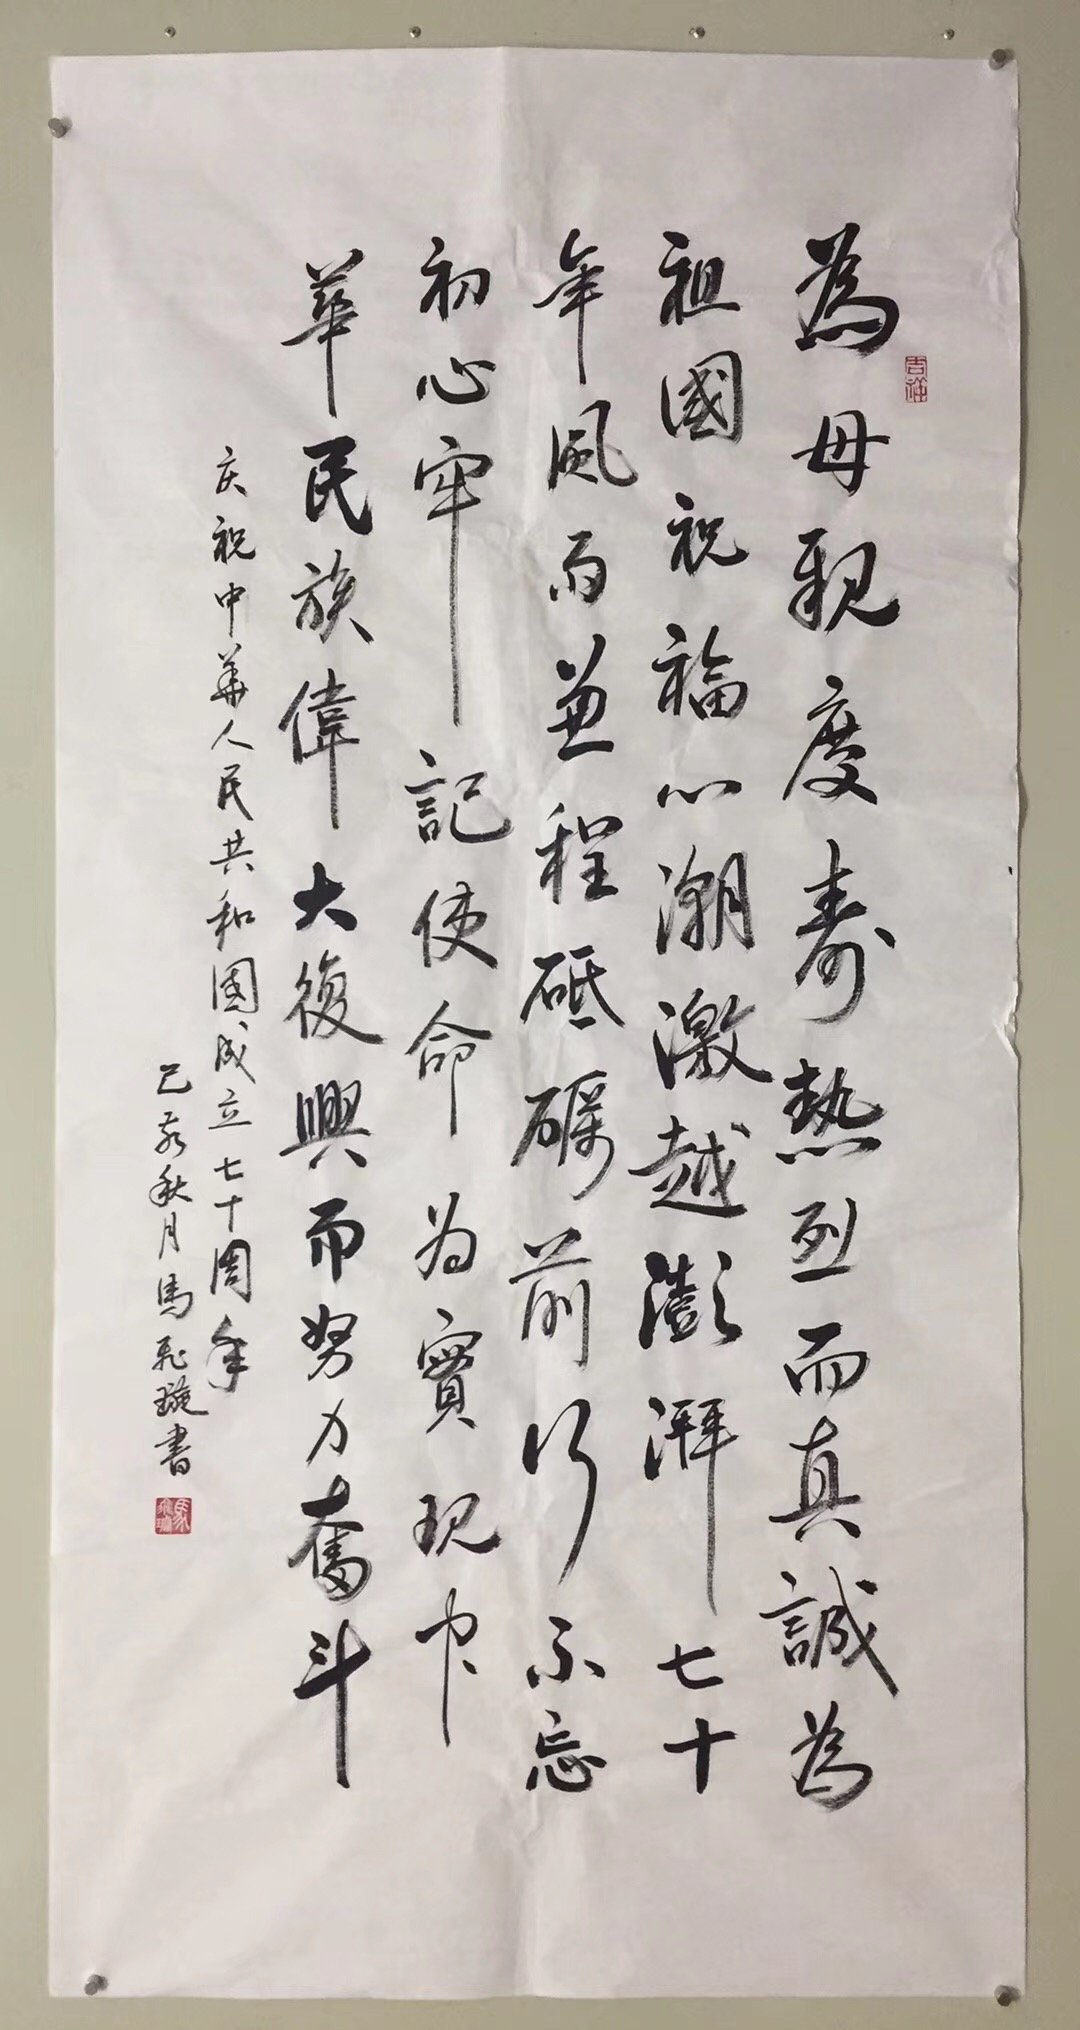 為母親度壽熱烈而真誠為
祖國祝福心潮激越澎湃七十
年風雨兼程砥礪前行不忘
初心牢記使命为實現中
華民族偉大復興而努力奮斗
庆祝中華人民共和國成立七十周年
己亥秋月馬飛璇書
吉祥